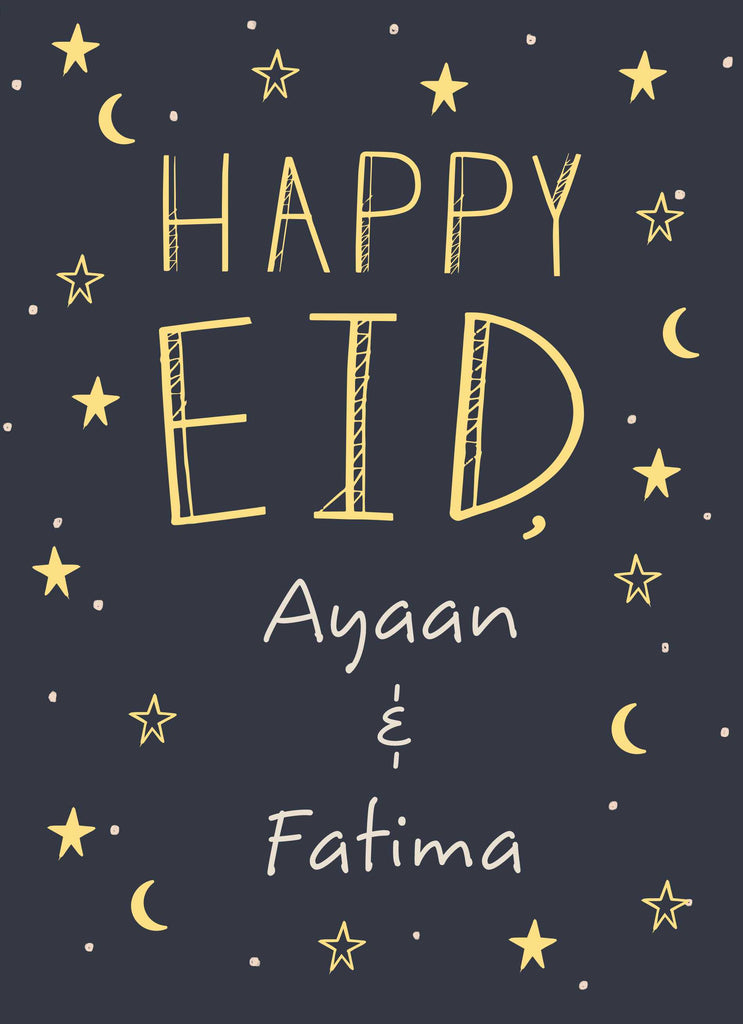 HAPPY
EID,
Ayaan
&
Fatima